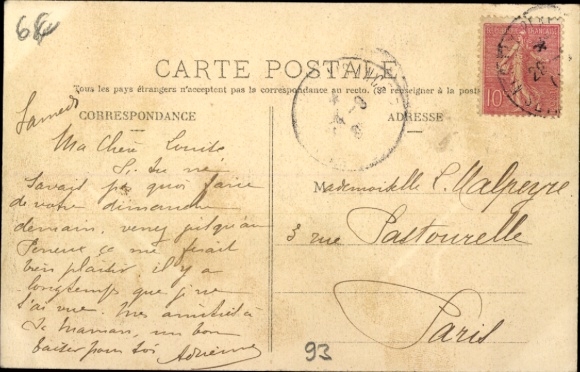 64
CARTE POSTALE
Tous les pays étrangers n'acceptent pas la correspondance au recto. (Se renseigner à la poste)
CORRESPONDANCE
ADRESSE
Samedi
Ma Chère Louise
Si tu ne
savait pas quoi faire
de votre dimanche
demain, venez jusqu'au
Perreux ça me ferait
bien plaisir, il y a
longtemps que je ne
t'ai vue. Mes amitiés à
Ta maman, un bon
baiser pour toi Adrienne
Mademoiselle L. Malpeyre
3 rue Pastourelle
Paris
93
10